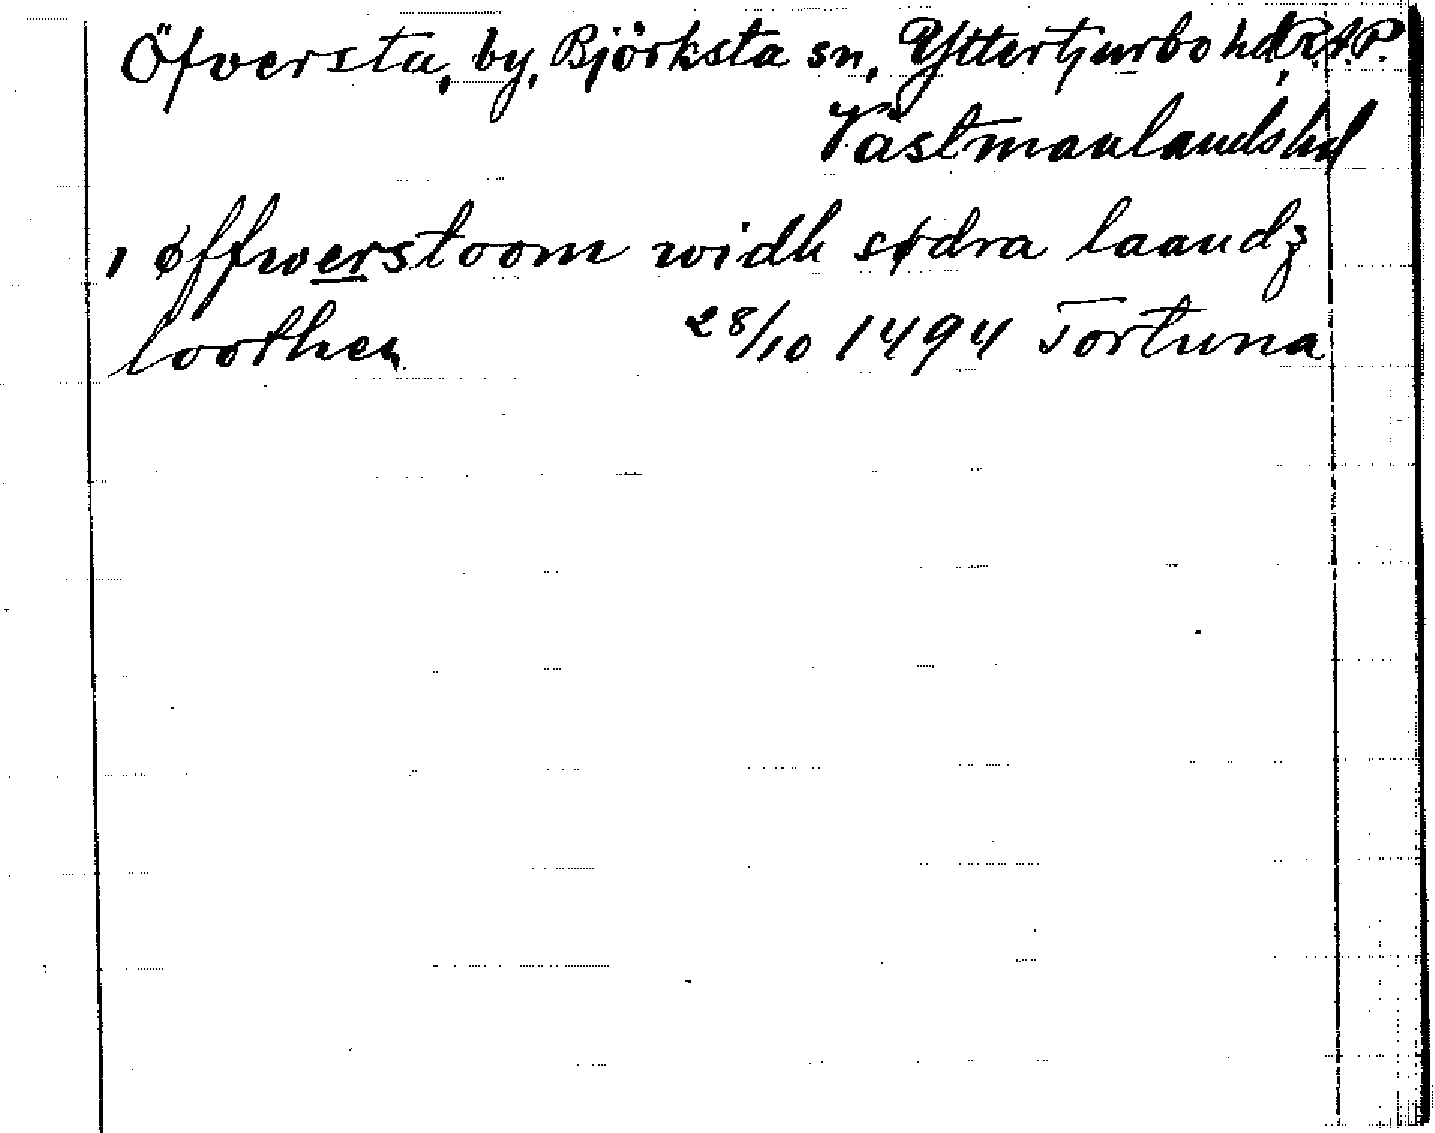 Öfversta, by, Björksta sn, Yttertjurbo hd, R.A.P.
Västmanlands hd
i øffwerstoom widh sødra laandz
loothen 28/10 1494 Tortuna